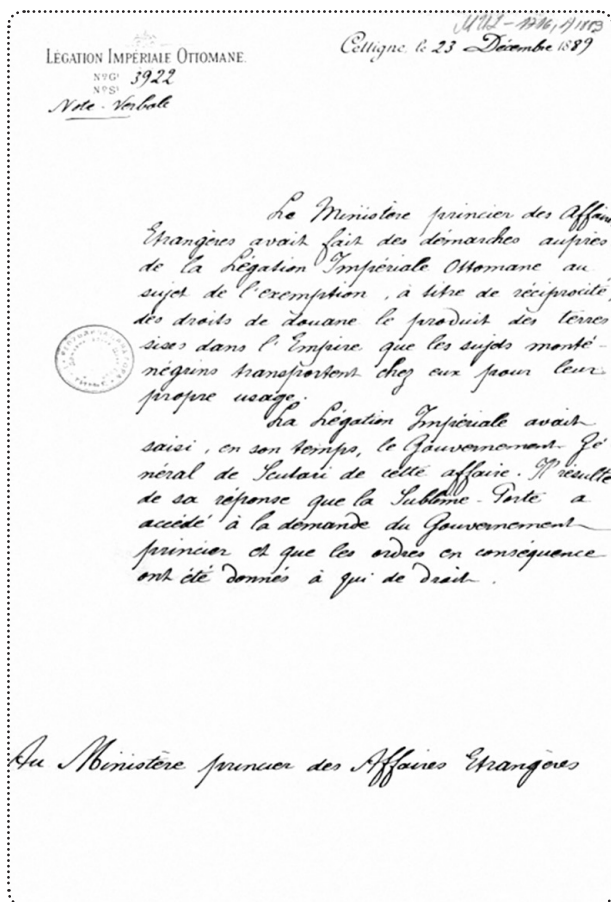 Cettigne, le 23 Décembre 1889
LÉGATION IMPÉRIALE OTTOMANE.
N° Gl 3922
N° Sl
Note-Verbale
Le Ministère princier des Affaires
Etrangères avait fait des démarches auprès
de la Légation Impériale Ottomane au
sujet de l'exemption, à titre de réciprocité
des droits de douane le produit des terres
sises dans l'Empire que les sujets monté-
négrins transportent chez eux pour leur
propre usage.
La Légation Impériale avait
saisi, en son temps, le Gouvernement Gé
néral de Scutari de cette affaire. Il résulte
de sa réponse que la Sublime-Porte a
accédé à la demande du Gouvernement
princier et que les ordres en conséquence
ont été donnés à qui de droit.
Au Ministère princier des Affaires Etrangères